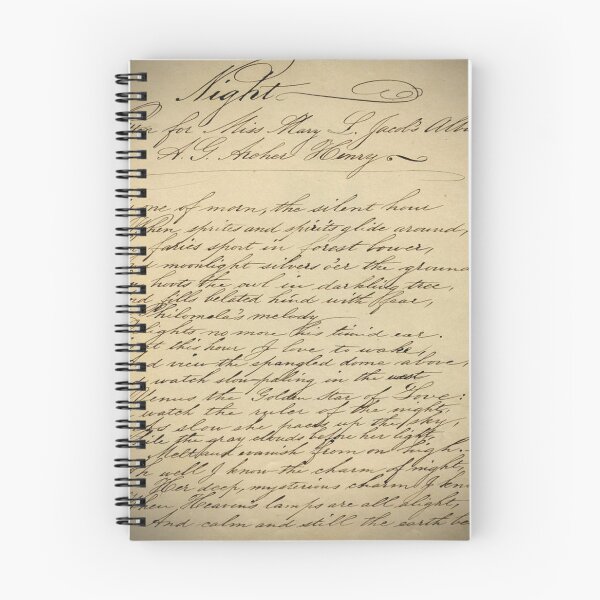 Night
for Miss Mary L. Jacob's Alb
A. G. Archer Henry
one of morn, the silent hour
When sprites and spirits glide around,
faries sport in forest bower,
moonlight silvers o'er the ground
hoots the owl in darkling tree,
nd fills belated hind with ffear,
Philomela's melody
lights no more this timid ear.
t this hour I love to wake,
d view the spangled dome above,
watch slow paling in the west
Venus the Golden Star of Love:
watch the ruler of the night,
s slow she paces up the sky,
ile the gray clouds before her light
Melt and vanish from on high.
h well I know the charm of night,
Her deep, mysterious charm I kn
When Heavens lamps are all alight,
And calm and still the earth be